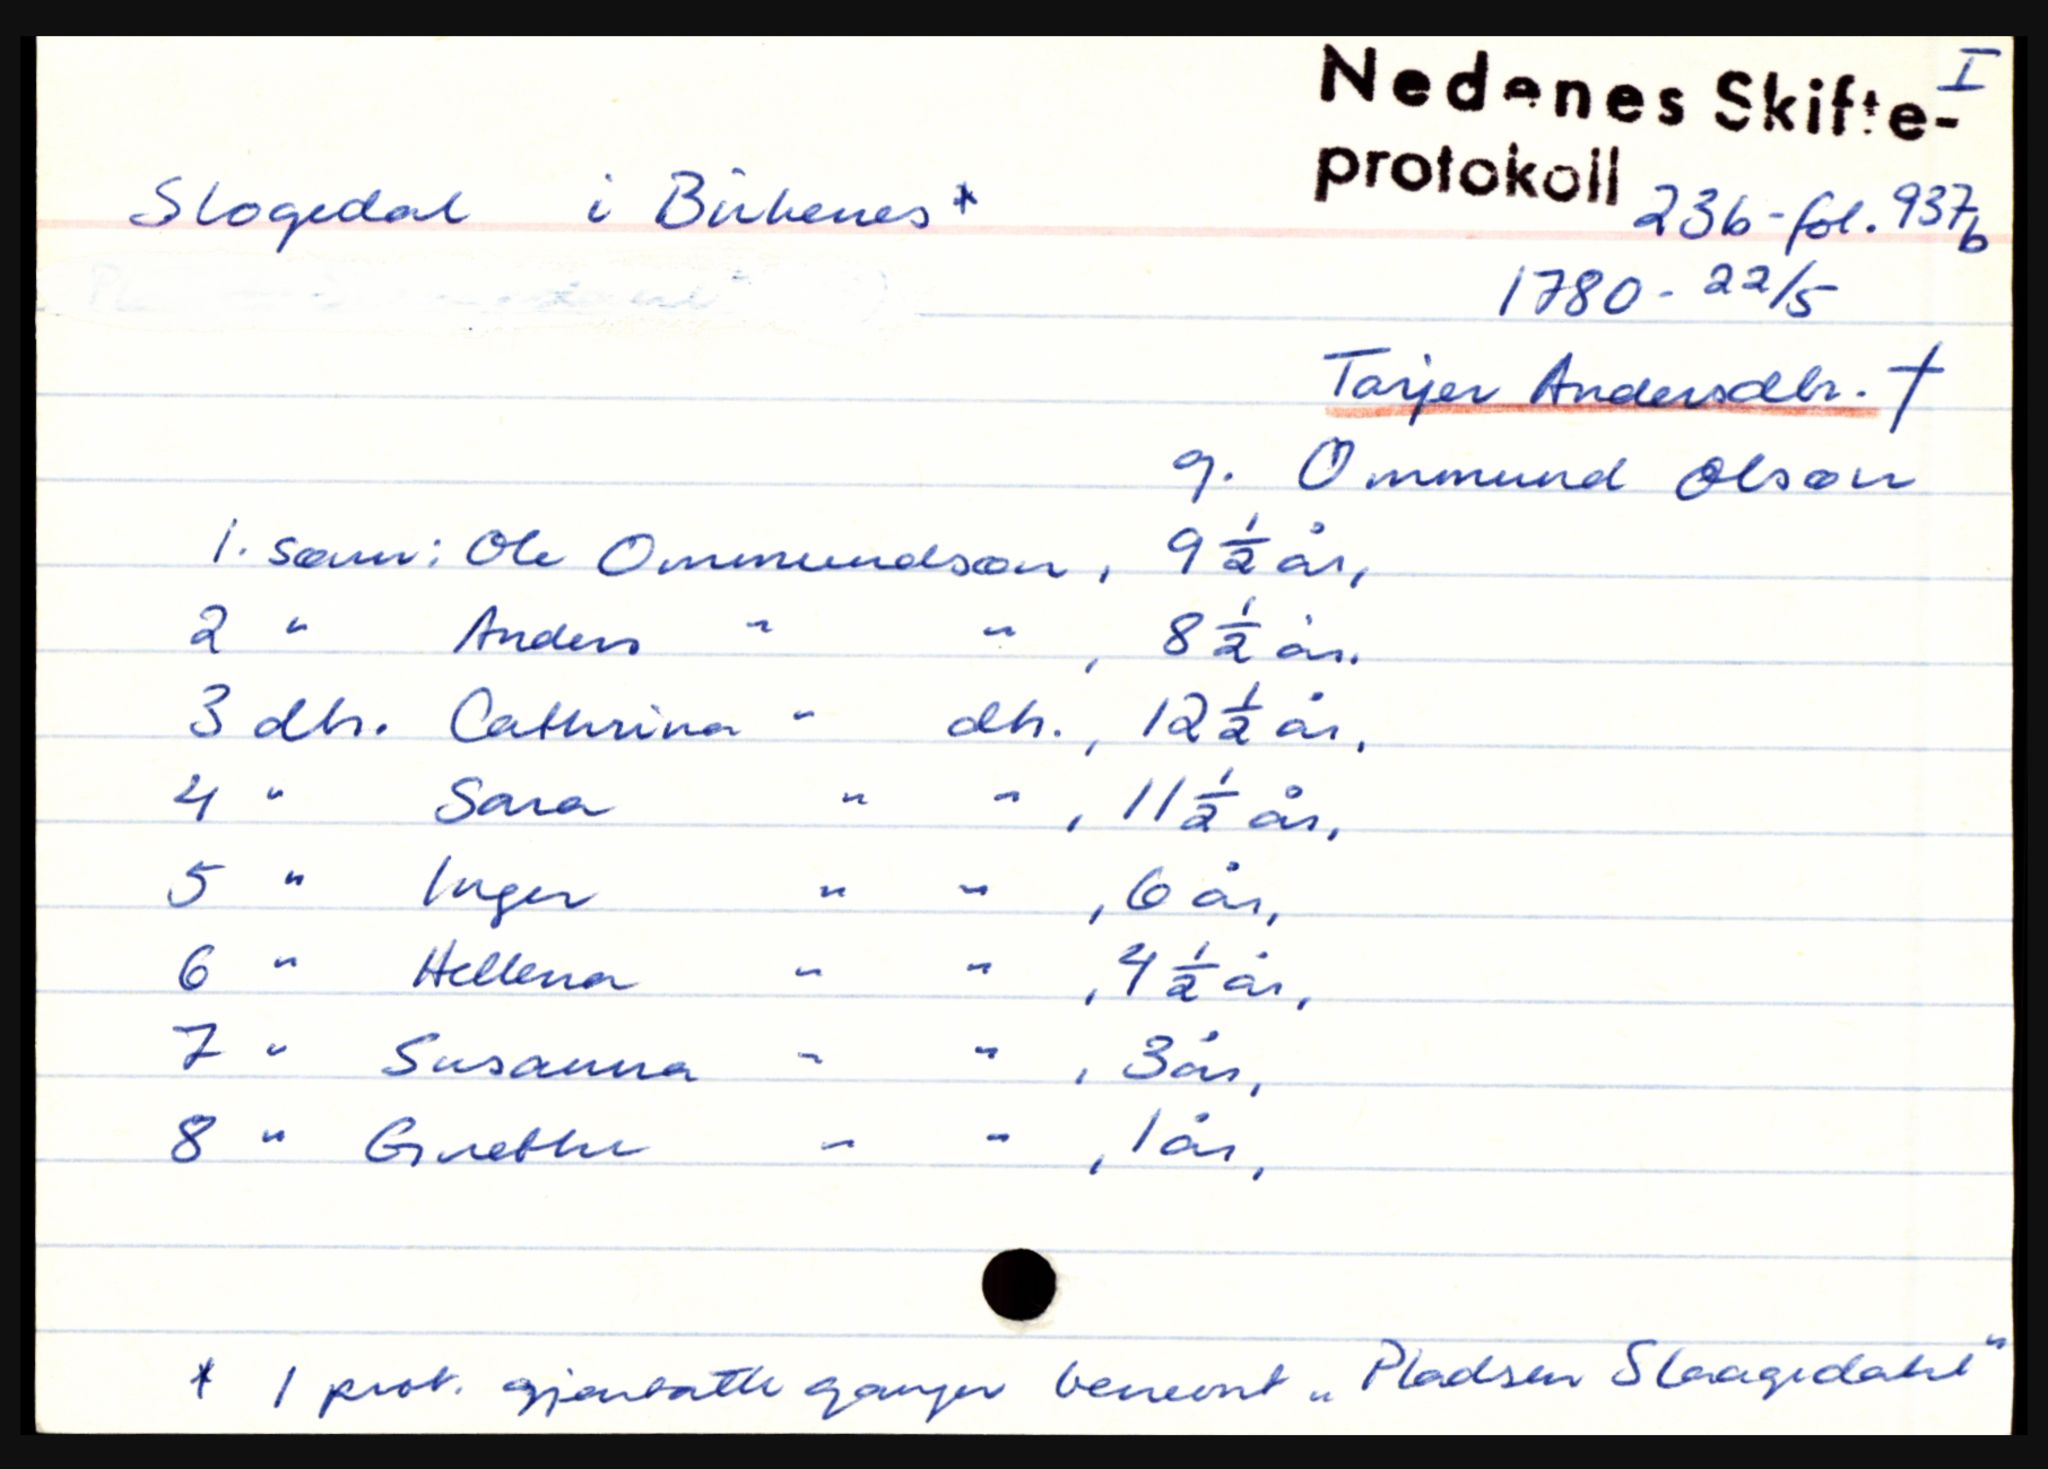 I
Nedenes Skifte-
protokoll
Slogedal i Birkenes*
23b - fol. 937b
1780 - 22/5
Tarjer Andersdtr. †
g. Ommund Olsøn
1. sønn: Ole Ommundsøn, 9 1/2 år,
2 " Anders " ", 8 1/2 år.
3 dtr. Cathrina " dtr., 12 1/2 år,
4 " Sara " ", 11 1/2 år,
5 " Inger " ", 6 år,
6 " Hellena " ", 4 1/2 år,
7 " Susanna " ", 3 år,
8 " Grethe " ", 1 år,
* I prot. gjentatte ganger benevnt "Pladsen Slaagedahl"